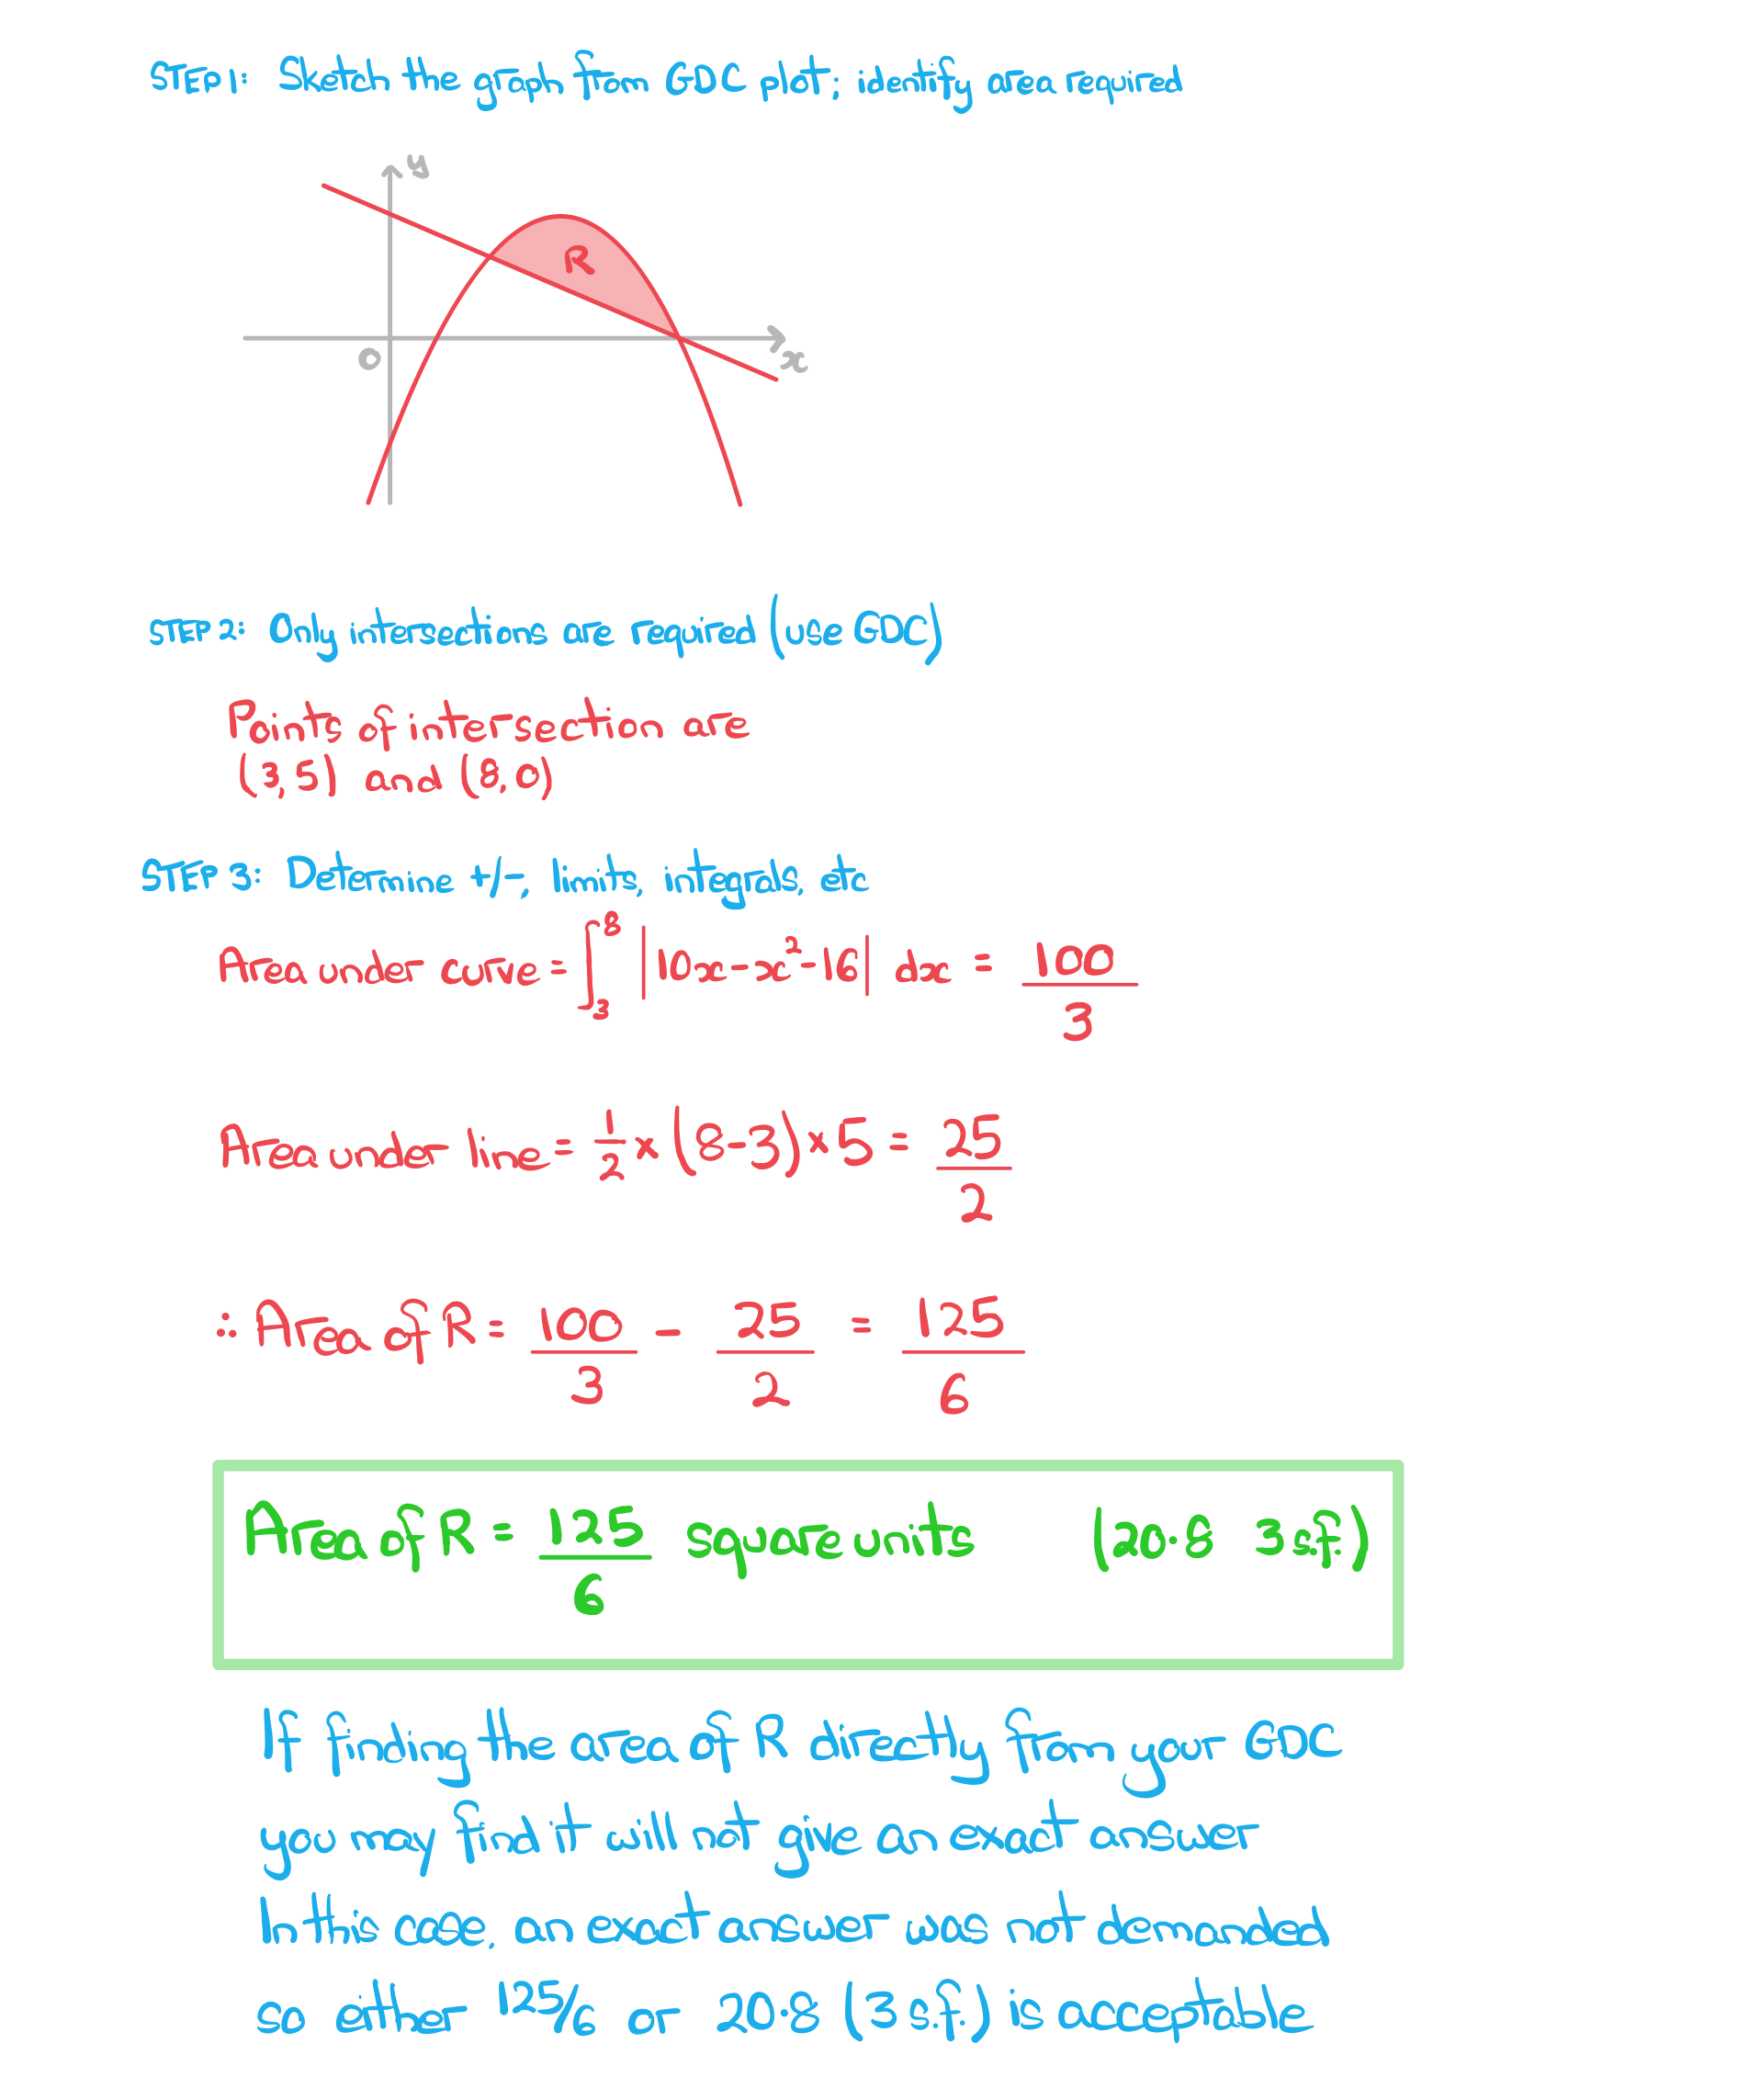 STEP 1: Sketch the graph from GDC plot; identify area required
y
R
O
x
STEP 2: Only intersections are required (use GDC)
Points of intersection are
(3, 5) and (8, 0)
STEP 3: Determine +/-, limits, integrals, etc
Area under curve = ∫₃⁸ |10x - x² - 16| dx = 100/3
Area under line = 1/2 × (8-3) × 5 = 25/2
∴ Area of R = 100/3 - 25/2 = 125/6
Area of R = 125/6 square units (20·8 3 s.f.)
If finding the area of R directly from your GDC
you may find it will not give an exact answer
In this case, an exact answer was not demanded
so either 125/6 or 20·8 (3 s.f.) is acceptable